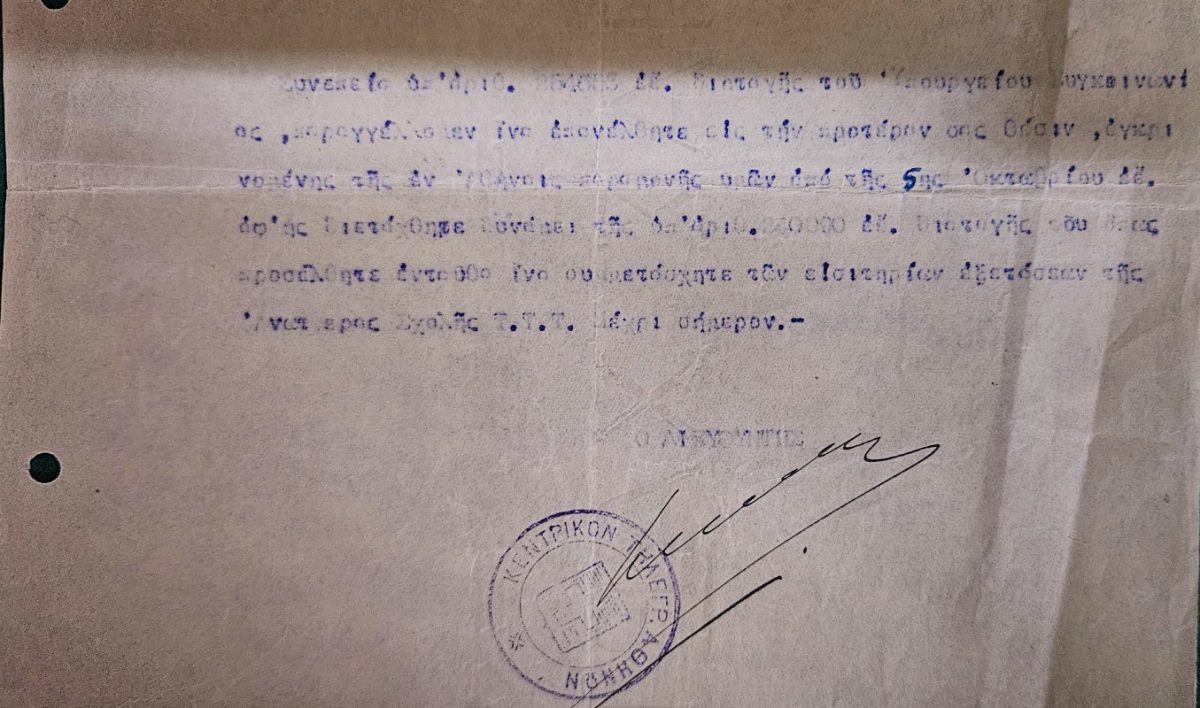 Συνεπεία ὑπ'ἀριθ. ἐἔ. διαταγῆς τοῦ Ὑπουργείου Συγκοινωνί
ας ,παραγγέλλομεν ἵνα ἐπανέλθητε εἰς τήν προτέραν σας θέσιν ,ἐγκρι
νομένης τῆς ἐν Ἀθήναις παραμονῆς ὑμῶν ἀπό τῆς 5ης Ὀκτωβρίου ἐἔ.
ἀφ'ἧς διετάχθητε δυνάμει τῆς ὑπ'ἀριθ. ἐἔ. διαταγῆς του ὅπως
προσέλθητε ἐνταῦθα ἵνα συμμετάσχητε τῶν εἰσιτηρίων ἐξετάσεων τῆς
Ἀνωτέρας Σχολῆς Τ.Τ.Τ. μέχρι σήμερον.-
Ο ΔΙΕΥΘΥΝΤΗΣ
ΚΕΝΤΡΙΚΟΝ ΤΗΛΕΓΡ. ΑΘΗΝΩΝ